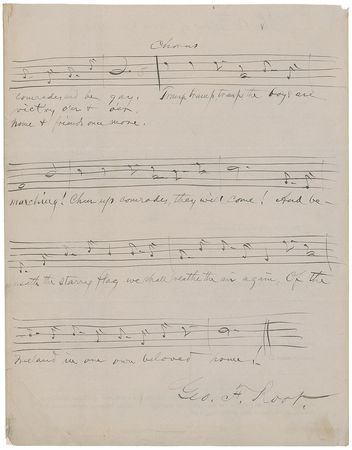 Chorus
comrades and be gay. Tramp tramp tramp the boys are
victry o'er & o'er
home & friends once more.
marching! Cheer up comrades, they will come! And be-
neath the starry flag we shall breathe the air again, Of the
Freeland in our own beloved home!
Geo. F. Root.